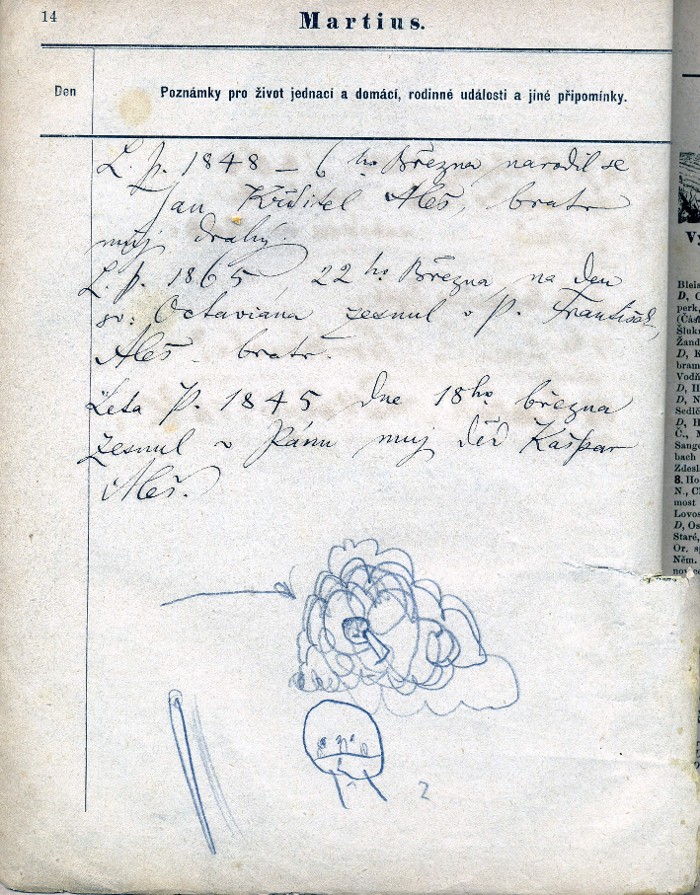 14
Martius.
Den
Poznámky pro život jednací a domácí, rodinné události a jiné připomínky.
L. p. 1848 – 6ho Března narodil se
Jan Křtitel Aleš, bratr
můj drahý.
L. p. 1865 22ho Března, na den
sv. Octaviána zesnul v P. František
Aleš bratr.
Léta P. 1845 dne 18ho března
zesnul v Pánu muj děd Kašpar
Aleš.
2
Bleis
D, C
perk,
(Čás
Šluk
Žand
D, K
bram
Vodň
D, H
D, N
Sedlč
D, H
Č., M
Sange
bach
Zdesl
8. Ho
N., Cl
most
Lovos
D, Os
Staré,
Or. s
Něm.